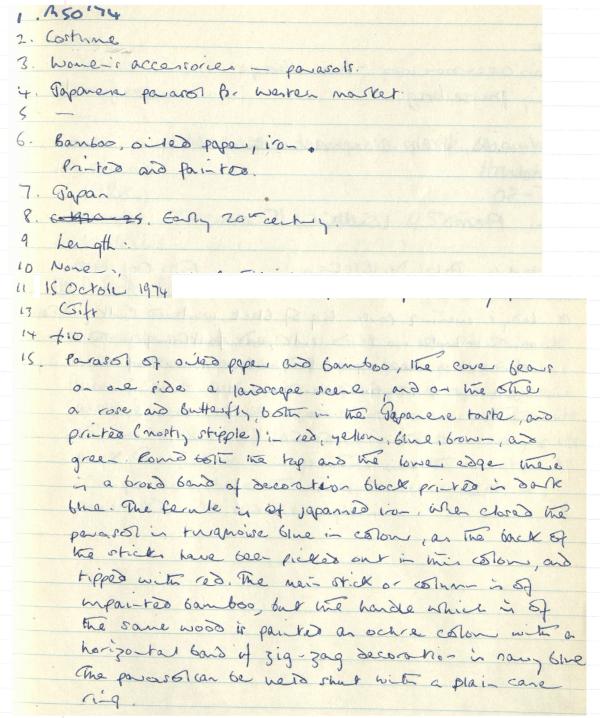 1. R50'74
2. Costume
3. Women's accessories – parasols.
4. Japanese parasol for western market.
5 —
6. Bamboo, oiled paper, iron.
Printed and painted.
7. Japan
8. c 1920-25. Early 20th century.
9 Length.
10 None.
11 15 October 1974
13 Gift
14 £10.
15. Parasol of oiled paper and bamboo, the cover bears
on one side a landscape scene, and on the other
a rose and butterfly, both in the Japanese taste, and
printed (mostly stipple) in red, yellow, blue, brown, and
green. Round both the top and the lower edge there
is a broad band of decoration block printed in dark
blue. The ferrule is of japanned iron. When closed the
parasol is turquoise blue in colour, as the back of
the sticks have been picked out in this colour, and
tipped with red. The main stick or column is of
unpainted bamboo, but the handle which is of
the same wood is painted an ochre colour with a
horizontal band of zig-zag decoration in navy blue
The parasol can be held shut with a plain cane
ring.